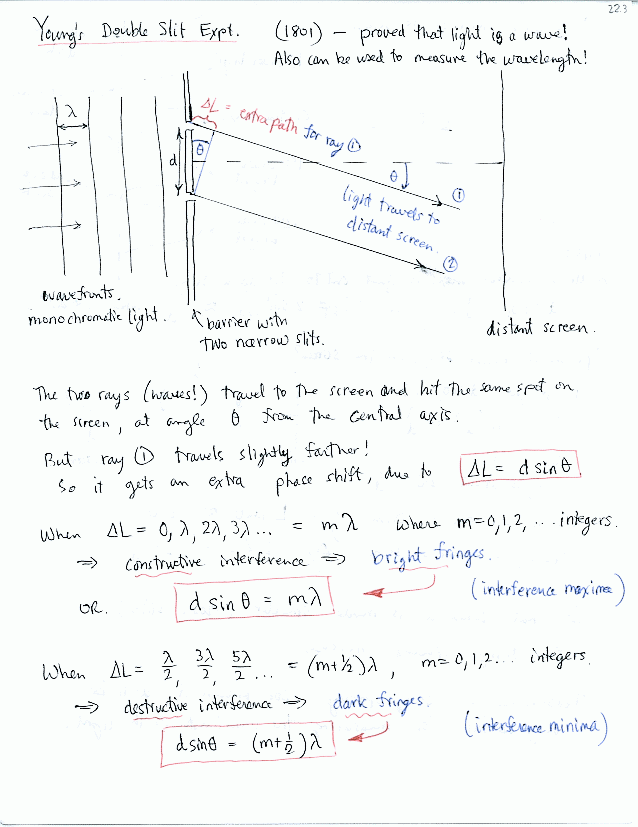 22.3
Young's Double Slit Expt. (1801) – proved that light is a wave!
Also can be used to measure the wavelength!
λ
ΔL = extra path for ray ①
θ
d
θ
①
light travels to
distant screen.
②
wavefronts.
monochromatic light.
barrier with
two narrow slits.
distant screen.
The two rays (waves!) travel to the screen and hit the same spot on
the screen, at angle θ from the central axis.
But ray ① travels slightly farther!
So it gets an extra phase shift, due to ΔL = d sin θ
When ΔL = 0, λ, 2λ, 3λ ... = mλ where m=0,1,2, ... integers.
⇒ constructive interference ⇒ bright fringes.
(interference maxima)
OR. d sin θ = mλ
When ΔL = λ/2, 3λ/2, 5λ/2 ... = (m+½)λ, m=0,1,2... integers.
⇒ destructive interference ⇒ dark fringes.
(interference minima)
d sin θ = (m+½)λ